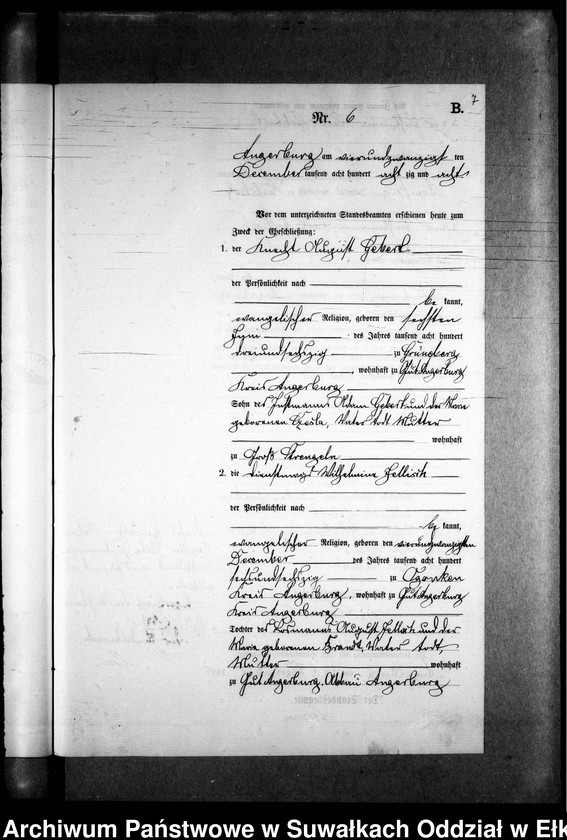 7
B.
Nr. 6
Angerburg am vierundzwanzigsten
December tausend acht hundert acht zig und acht
Vor dem unterzeichneten Standesbeamten erschienen heute zum
Zweck der Eheschließung:
1. der Knecht August Gebert
der Persönlichkeit nach
be kannt,
evangelischer Religion, geboren den sechsten
des Jahres tausend acht hundert
dreiundsechszig zu Grünsberg
, wohnhaft zu Gut Angerburg
Kreis Angerburg
Sohn des Instmanns Adam Gebert und der Marie
geborenen Vater todt Mutter
wohnhaft
zu Groß Strengeln
2. die Dienstmagd Wilhelmine
der Persönlichkeit nach
be kannt,
evangelischer Religion, geboren den vierundzwanzigsten
December des Jahres tausend acht hundert
sechsundsechszig zu Ogonken
Kreis Angerburg, wohnhaft zu Gut Angerburg
Kreis Angerburg
Tochter des August und der
Marie geborenen Brandt, Vater todt,
Mutter wohnhaft
zu Gut Angerburg, Abbau Angerburg
Archiwum Państwowe w Suwałkach Oddział w Ełk